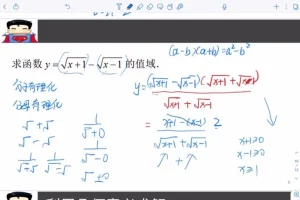 (a-b)(a+b)=a²-b²
求函数 y=√x+1-√x-1 的值域.
分子有理化
分母有理化
y= (√x+1-√x-1)(√x+1+√x-1)
√x+1+√x-1
= x+1-(x-1) 2
√x+1+√x-1
√+√
√-√
1
√+0
1
√-0
√±0
1
√+√
1
√-√
x+1≥0
x-1≥0
x≥1